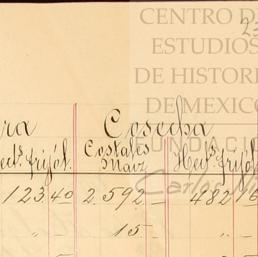 CENTRO D
ESTUDIOS
DE HISTORI
DE MEXICO
FUNDACIÓN
Carlos
23
ra Cosecha
ect.s frijol. Costales Maiz Hect.s frijol
123 40 2.592 — 482 16
" " 15 — " "